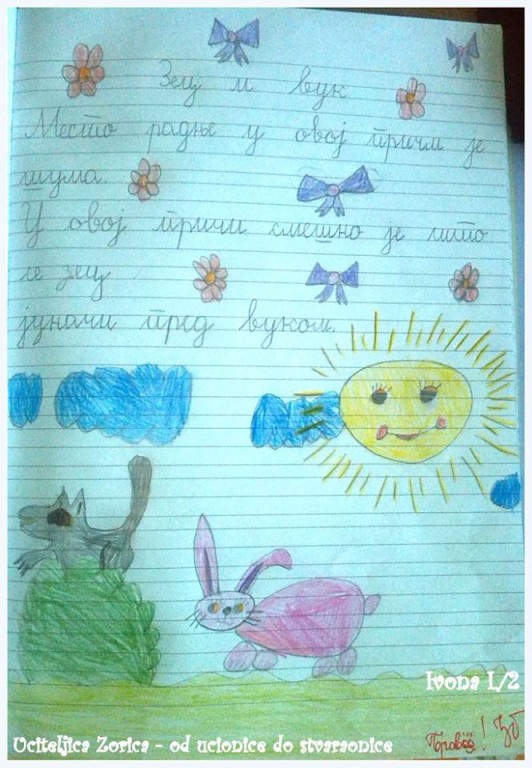 Зец и вук
Место радње у овој причи је
шума.
У овој причи смешно је што
се зец
јуначи пред вуком.
Ivona I/2
Učiteljica Zorica - od ucionice do stvaraonice